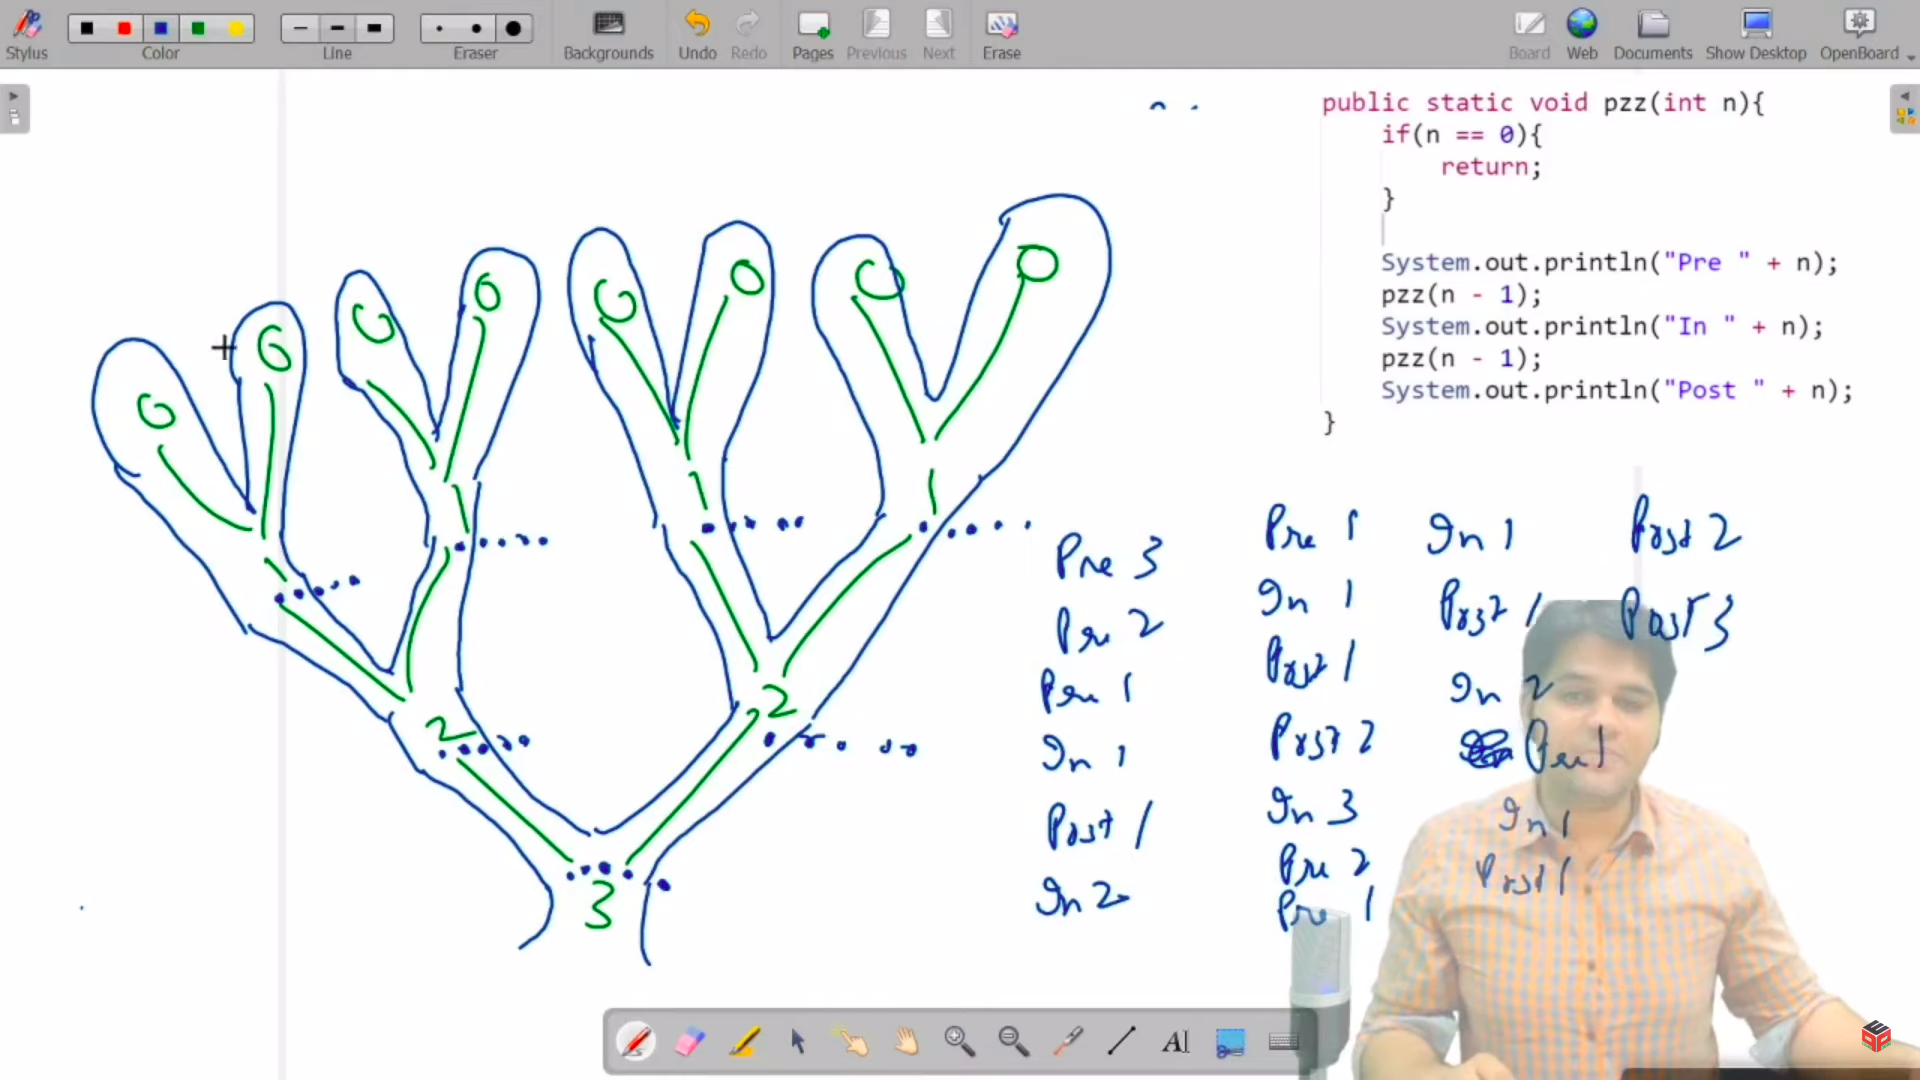 Stylus
Color
Line
Eraser
Backgrounds
Undo
Redo
Pages
Previous
Next
Erase
Board
Web
Documents
Show Desktop
OpenBoard
public static void pzz(int n){
if(n == 0){
return;
}
System.out.println("Pre " + n);
pzz(n - 1);
System.out.println("In " + n);
pzz(n - 1);
System.out.println("Post " + n);
}
0 0 0 0 0 0 0 0
1 1 1 1
2 2
3
Pre 3
Pre 2
Pre 1
In 1
Post 1
In 2
Pre 1
In 1
Post 1
Post 2
In 3
Pre 2
Pre 1
In 1
Post 1
In 2
Pre 1
In 1
Post 1
Post 2
Post 3